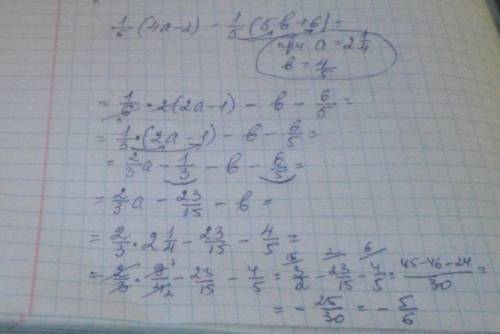 1/6 (4a-2) - 1/5 (5b+6) =
при a = 2 1/4
b = 4/5
= 1/6 · 2(2a-1) - b - 6/5 =
= 1/3 · (2a-1) - b - 6/5 =
= 2/3 a - 1/3 - b - 6/5 =
= 2/3 a - 23/15 - b =
= 2/3 · 2 1/4 - 23/15 - 4/5 =
= 2/3 · 9/4 - 23/15 - 4/5 = 3/2 - 23/15 - 4/5 = 45-46-24/30 =
= - 25/30 = - 5/6